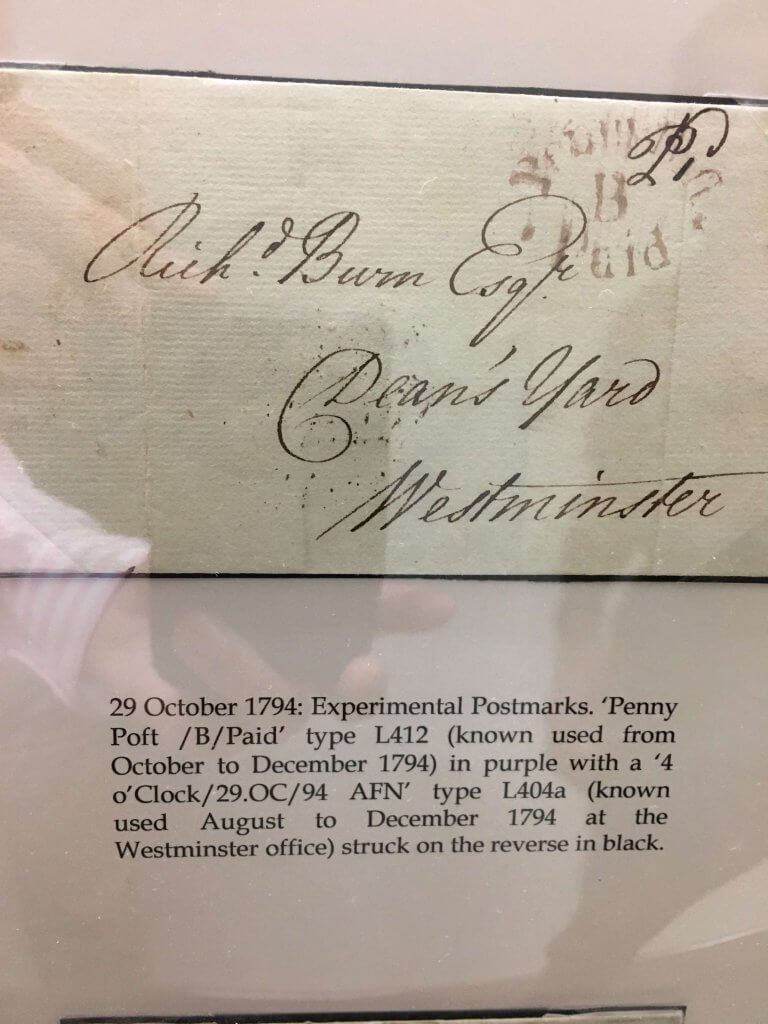 Pd
B
Paid
Richd. Burn Esqr
Dean's Yard
Westminster
29 October 1794: Experimental Postmarks. 'Penny
Poft /B/Paid' type L412 (known used from
October to December 1794) in purple with a '4
o'Clock/29.OC/94 AFN' type L404a (known
used August to December 1794 at the
Westminster office) struck on the reverse in black.